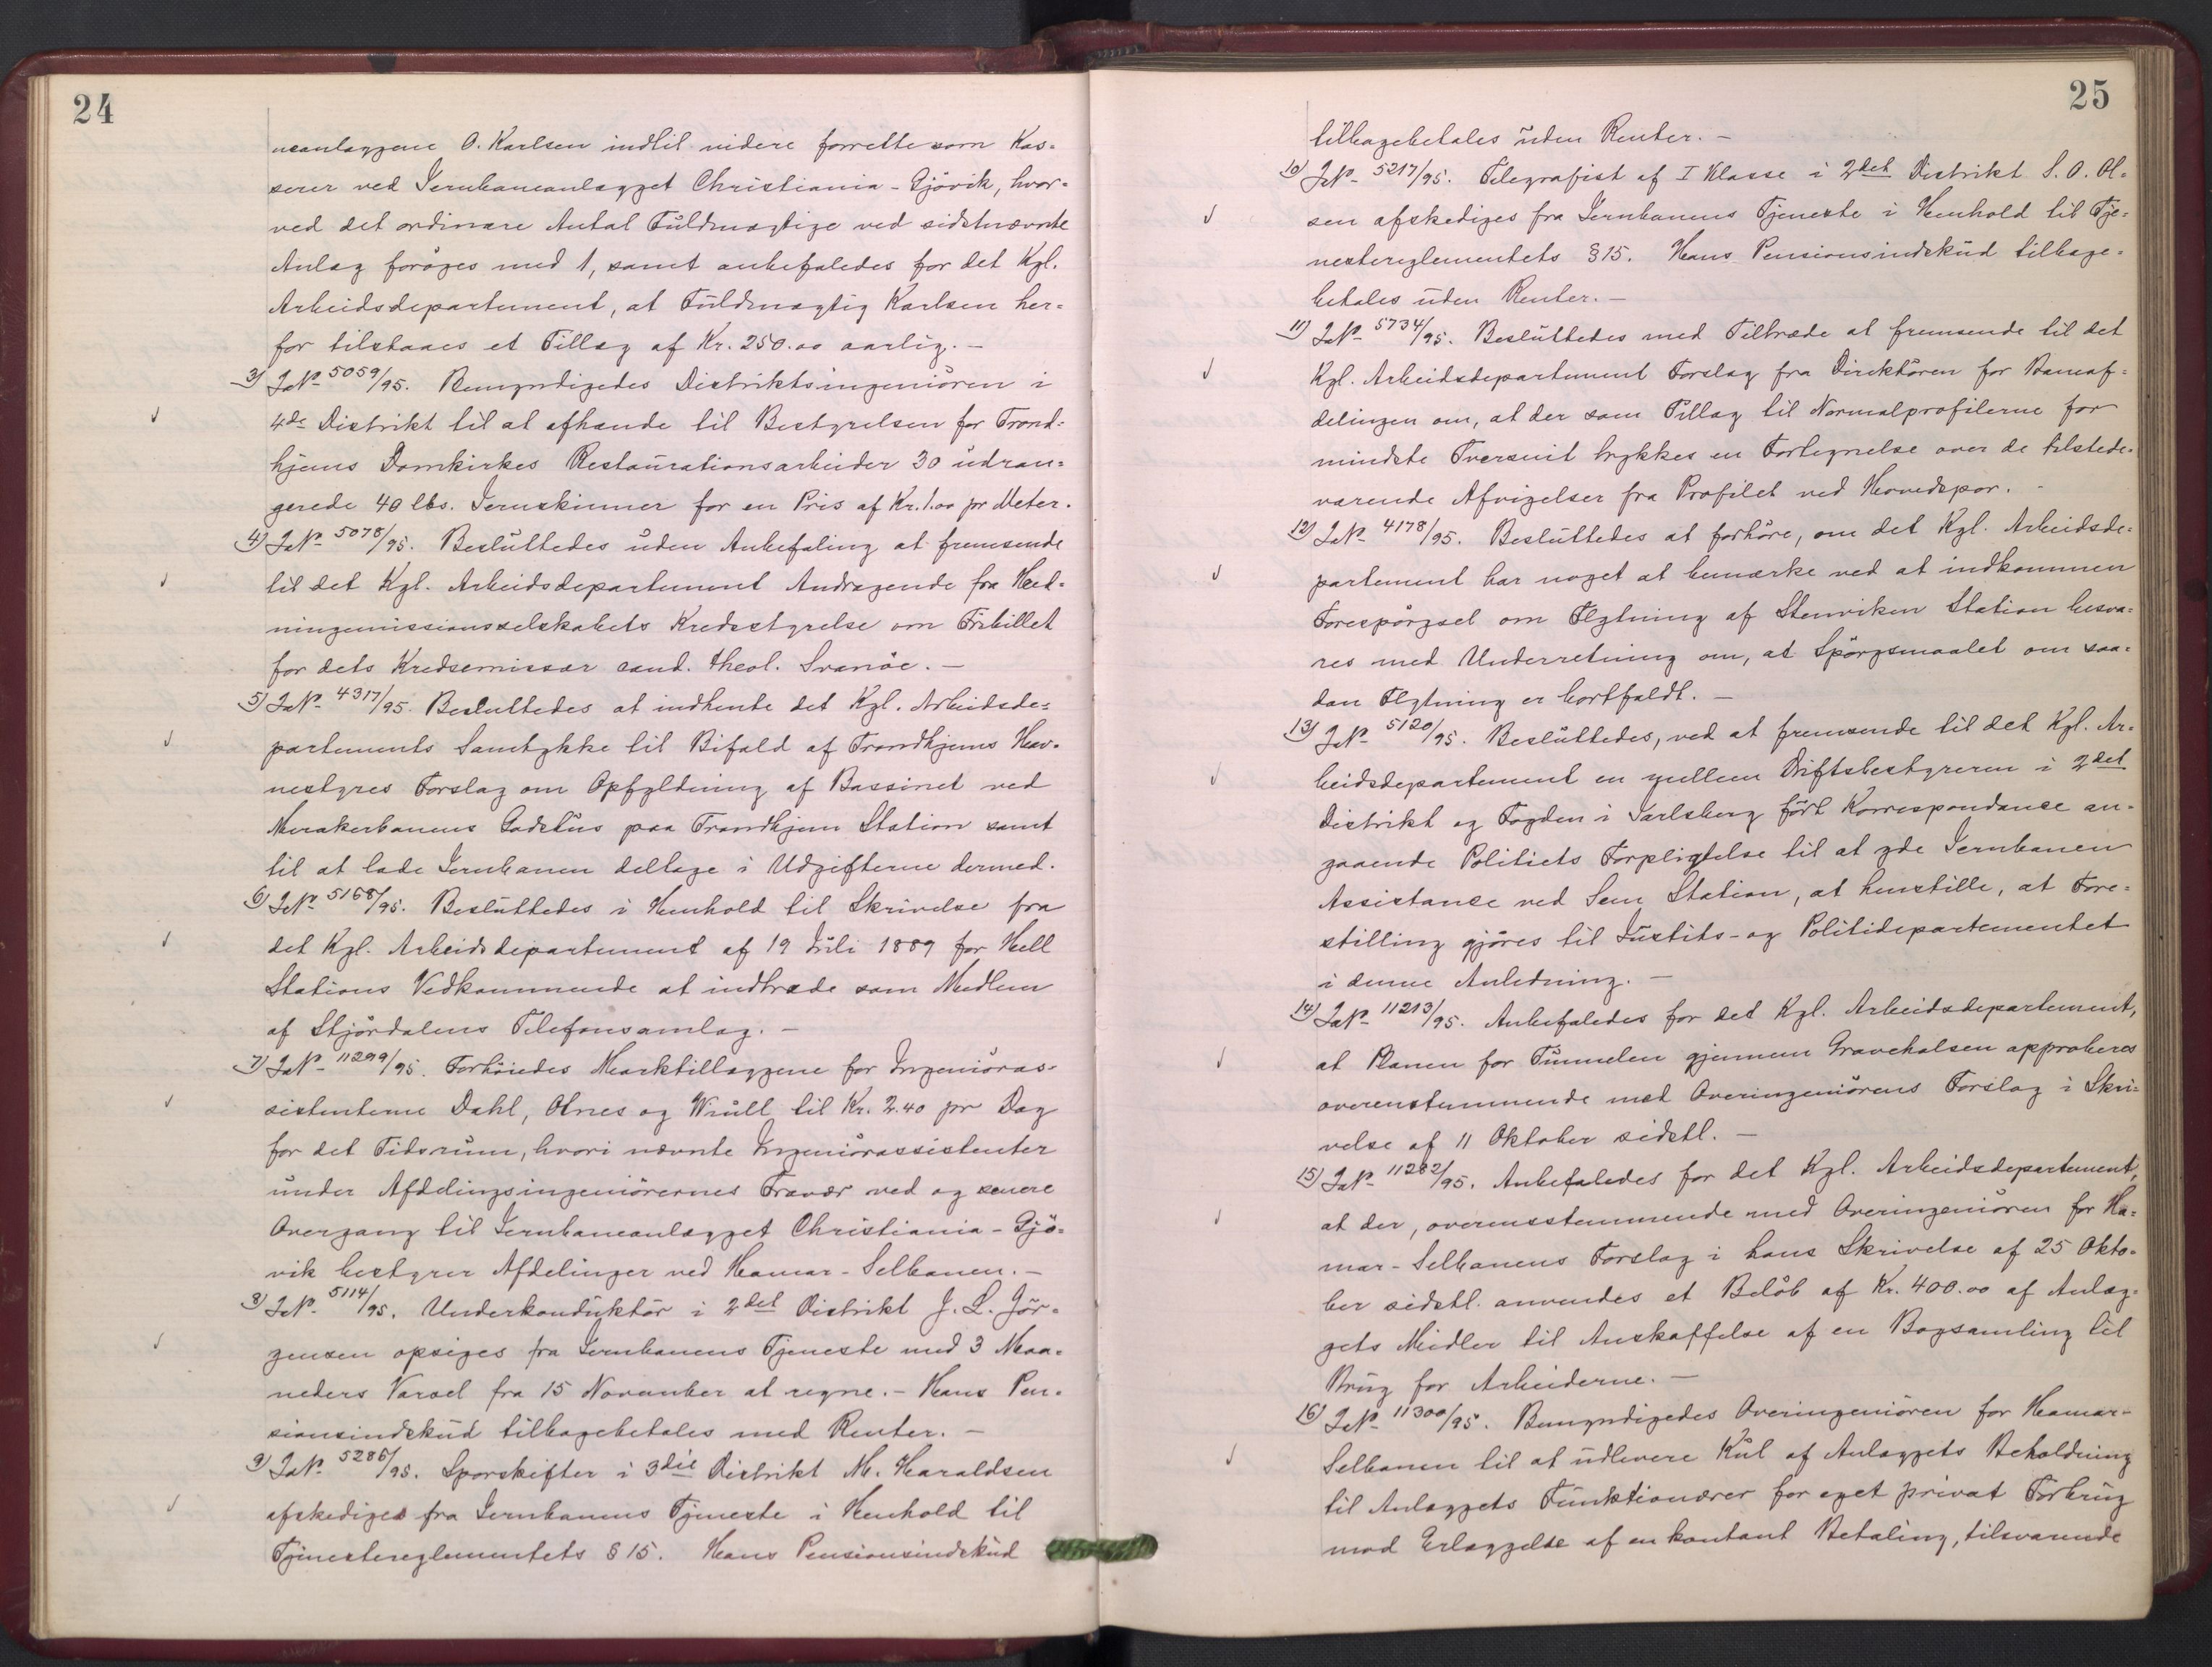 24
neanlæggene O. Karlsen indtil videre forrette som Kas-
serer ved Jernbaneanlægget Christiania-Gjövik, hvor-
ved det ordinære Antal Fuldmægtige ved sidstnævnte
Anlæg foröges med 1, samt anbefaledes for det Kgl.
Arbeidsdepartement, at Fuldmægtig Karlsen her-
for tilstaaes et Tillæg af Kr. 250.00 aarlig. -
3) JNo 5059/95. Bemyndigedes Distriktsingeniören i
4de Distrikt til at afhænde til Bestyrelsen for Trond-
hjems Domkirkes Restaurationsarbeider 30 udran-
gerede 40 lbs. Jernskinner for en Pris af Kr. 1.00 pr Meter.
4) JNo 5078/95. Besluttedes uden Anbefaling at fremsende
til det Kgl. Arbeidsdepartement Andragende fra Hed-
ningemissionsselskabets Kredsstyrelse om Fribillet
for dets Kredsemissær cand. theol. Svanöe. -
5) JNo 4317/95. Besluttedes at indhente det Kgl. Arbeidsde-
partements Samtykke til Bifald af Trondhjems Hav-
nestyres Forslag om Opfyldning af Bassinet ved
Merakerbanens Godshus paa Trondhjem Station samt
til at lade Jernbanen deltage i Udgifterne dermed.
6) JNo 5168/95. Besluttedes i Henhold til Skrivelse fra
det Kgl. Arbeidsdepartement af 19 Juli 1889 for Hell
Stations Vedkommende at indtræde som Medlem
af Stjördalens Telefonsamlag. -
7) JNo 11299/95. Forhöiedes Marktillæggene for Ingeniöras-
sistenterne Dahl, Olnes og Wiull til Kr. 2.40 pr Dag
for det Tidsrum, hvori nævnte Ingeniörassistenter
under Afdelingsingeniörernes Fravær ved og senere
Overgang til Jernbaneanlægget Christiania-Gjö-
vik bestyrer Afdelinger ved Hamar-Selbanen. -
8) JNo 5114/95. Underkonduktör i 2det Distrikt J. L. Jör-
gensen opsiges fra Jernbanens Tjeneste med 3 Maa-
neders Varsel fra 15 November at regne. - Hans Pen-
sionsindskud tilbagebetales med Renter. -
9) JNo 5286/95. Sporskifter i 3die Distrikt M. Haraldsen
afskediges fra Jernbanens Tjeneste i Henhold til
Tjenestereglementets § 15. Hans Pensionsindskud
25
tilbagebetales uden Renter. -
10) JNo 5217/95. Telegrafist af I Klasse i 2det Distrikt S. O. Ol-
sen afskediges fra Jernbanens Tjeneste i Henhold til Tje-
nestereglementets § 15. Hans Pensionsindskud tilbage-
betales uden Renter. -
11) JNo 5734/95. Besluttedes med Tiltræde at fremsende til det
Kgl. Arbeidsdepartement Forslag fra Direktören for Baneaf-
delingen om, at der som Tillæg til Normalprofilerne for
mindste Tversnit trykkes en Fortegnelse over de tilstede-
værende Afvigelser fra Profilet ved Hovedspor. -
12) JNo 4178/95. Besluttedes at forhöre, om det Kgl. Arbeidsde-
partement har noget at bemærke ved at indkommen
Forespörgsel om Flytning af Stenviken Station besva-
res med Underretning om, at Spörgsmaalet om saa-
dan Flytning er bortfaldt. -
13) JNo 5120/95. Besluttedes, ved at fremsende til det Kgl. Ar-
beidsdepartement en mellem Driftsbestyreren i 2det
Distrikt og Fogden i Jarlsberg fört Korrespondance an-
gaaende Politiets Forpligtelse til at yde Jernbanen
Assistance ved Sem Station, at henstille, at Fore-
stilling gjöres til Justits- og Politidepartementet
i denne Anledning. -
14) JNo 11213/95. Anbefaledes for det Kgl. Arbeidsdepartement,
at Planen for Tunnelen gjennem Gravehalsen approberes
overenstemmende med Overingeniörens Forslag i Skri-
velse af 11 Oktober sidstl. -
15) JNo 11282/95. Anbefaledes for det Kgl. Arbeidsdepartement,
at der, overensstemmende med Overingeniören for Ha-
mar-Selbanens Forslag i hans Skrivelse af 25 Okto-
ber sidstl. anvendes et Belöb af Kr. 400.00 af Anlæg-
gets Midler til Anskaffelse af en Bogsamling til
Brug for Arbeiderne. -
16) JNo 11300/95. Bemyndigedes Overingeniören for Hamar-
Selbanen til at udlevere Kul af Anlæggets Beholdning
til Anlæggets Funktionærer for eget privat Forbrug
mod Erlæggelse af en kontant Betaling, tilsvarende